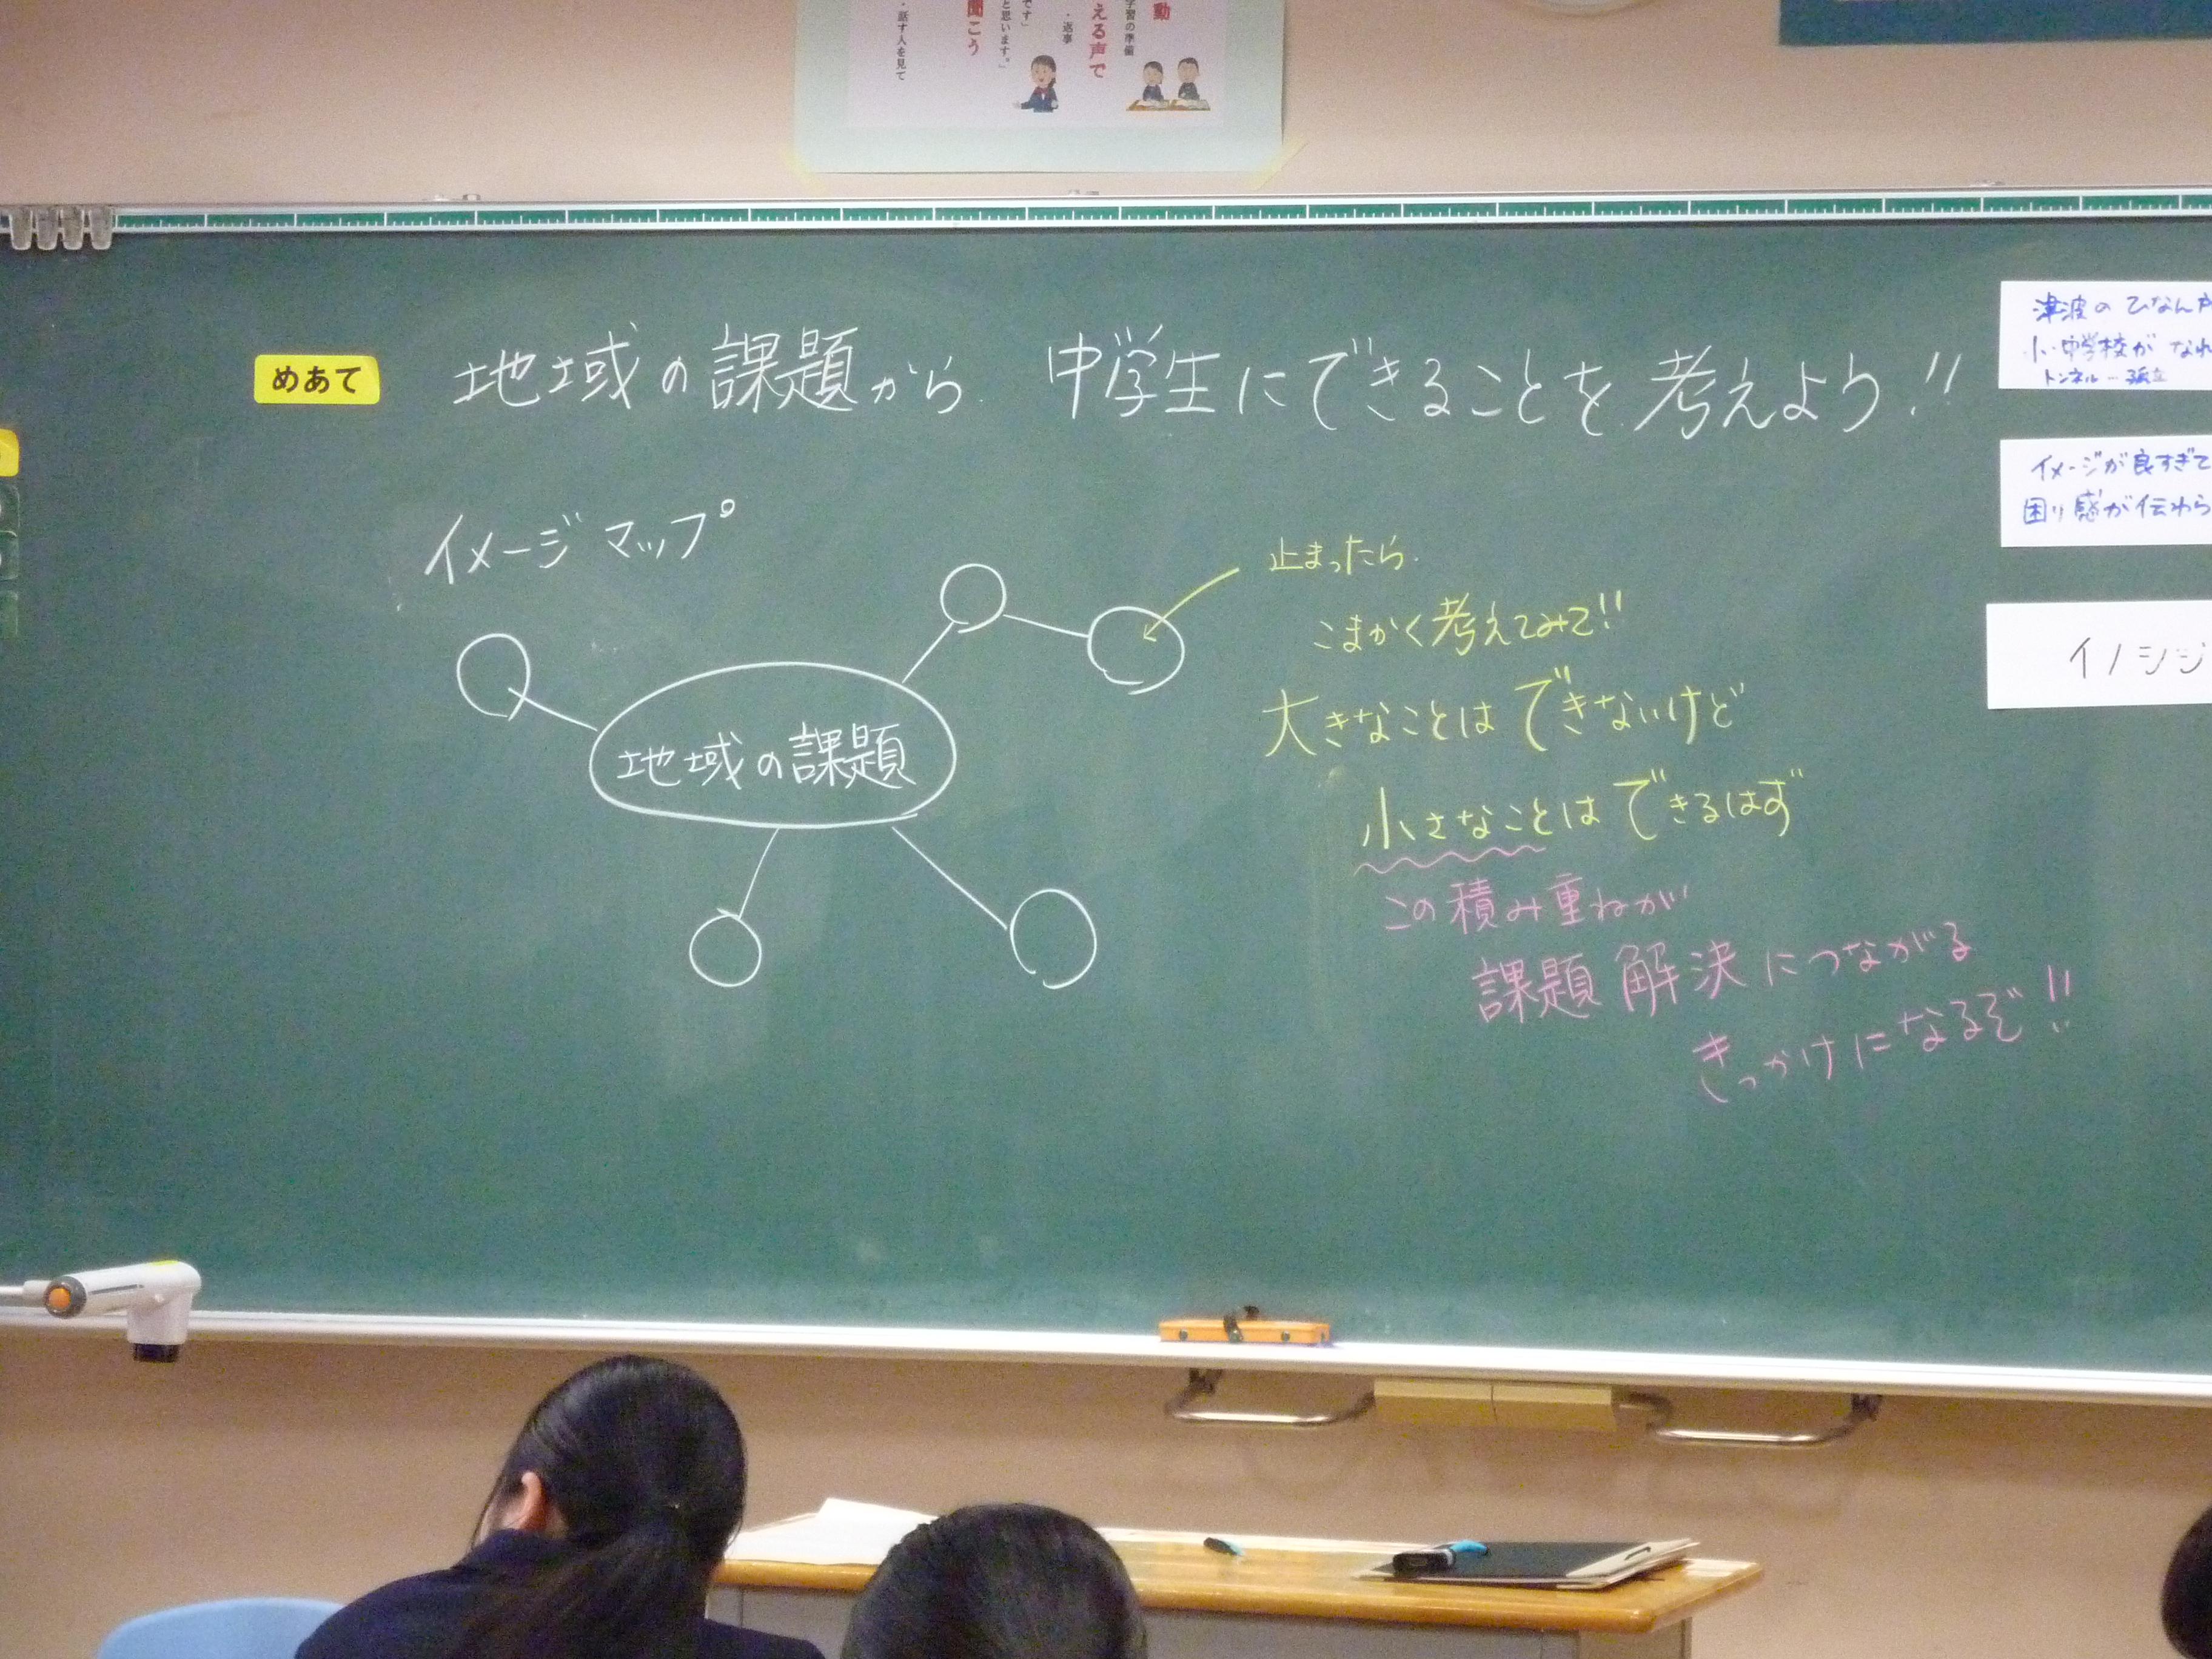 動
学習の準備
える声で
・返事
です」
と思います。」
聞こう
・話す人を見て
めあて
地域の課題から 中学生にできることを考えよう!!
イメージマップ
地域の課題
止まったら
こまかく考えてみて!!
大きなことはできないけど
小さなことはできるはず
この積み重ねが
課題解決につながる
きっかけになるぞ!!
津波のひなん
小・中学校がなれ
トンネル…孤立
イメージが良すぎて
困り感が伝わら
イノシシ